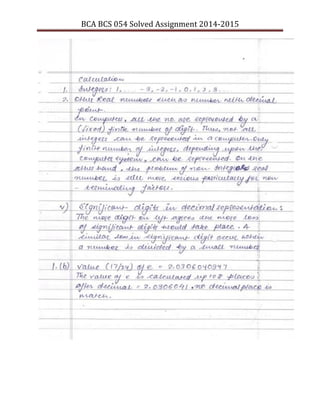 BCA BCS 054 Solved Assignment 2014-2015
Calculation
1. Integers: 1, ... -3, -2, -1, 0, 1, 2, 3 ...
2. Other Real numbers such as number with decimal
point.
In computers, all the no. are represented by a
(fixed) finite number of digit. Thus, not all
integers can be represented in a computer. Only
finite number of integers, depending upon the
computer system, can be represented. On the
other hand, the problem of non-integer real
number is still more serious particularly for non
- terminating factors.
v) Significant digits in decimal representation:
The more digit on left agrees the more loss
of significant digits would take place. A
similar loss in significant digit occur when
a number is divided by a small number
1. (b) Value (17/24) of e = 2.0306040947
The value of e is calculated up to 8 places
after decimal = 2.0306041 no decimal place is
match.